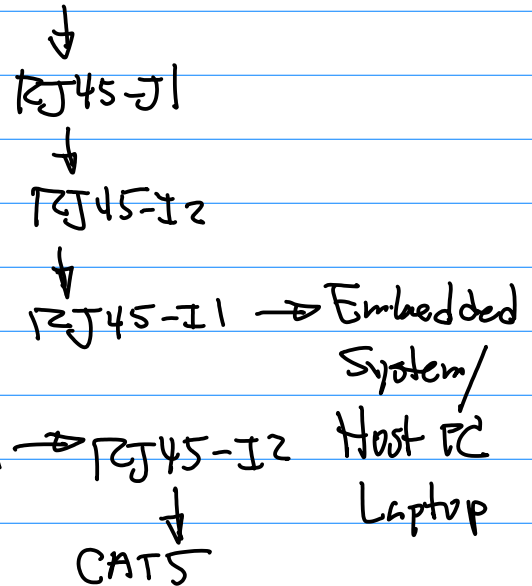 ↓
RJ45-J1
↓
RJ45-I2
↓
RJ45-I1 → Embedded
System/
Host PC
Laptop
→ RJ45-I2
↓
CAT5